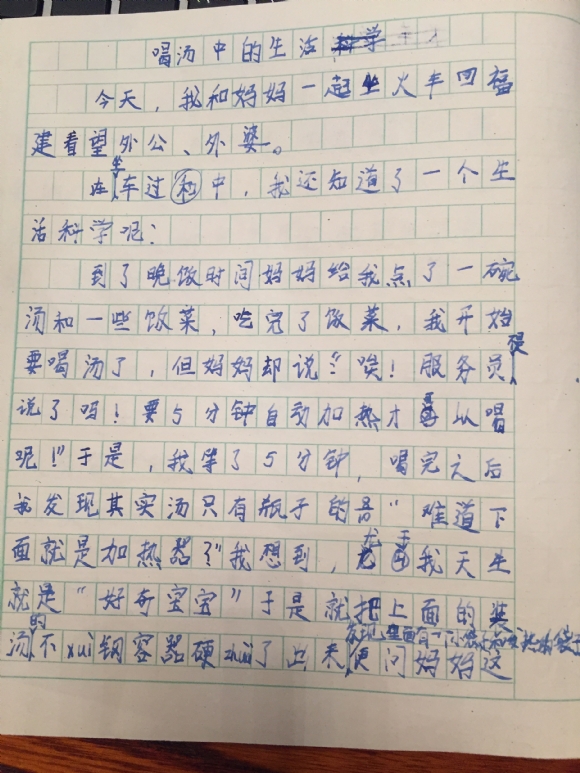 喝汤中的生活科学
今天，我和妈妈一起坐火车回福
建看望外公、外婆。
在坐车过程中，我还知道了一个生
活科学呢：
到了晚饭时间妈妈给我点了一碗
汤和一些饭菜，吃完了饭菜，我开始
要喝汤了，但妈妈却说：“唉！服务员
说了吗！要5分钟自动加热才可以喝
呢！”于是，我等了5分钟，喝完之后
我发现其实汤只有瓶子的 “难道下
面就是加热器？”我想到，
我天生
就是“好奇宝宝”于是就把上面的装
汤的不xiu钢容器硬zhuai了出来，
便问妈妈这